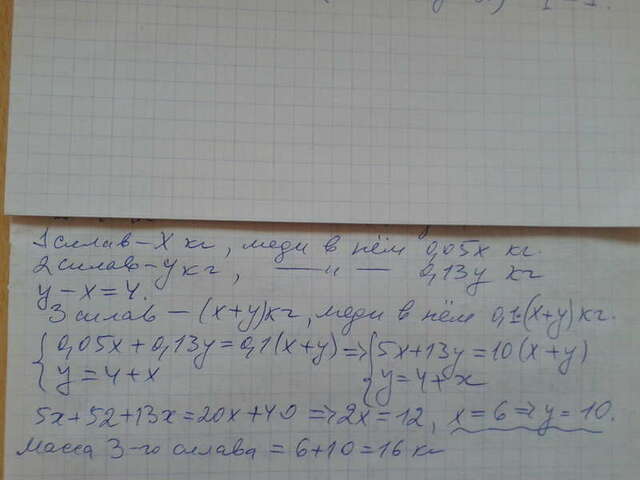 1 сплав – x кг, меди в нём 0,05x кг.
2 сплав – y кг, —— " —— 0,13y кг
y – x = 4.
3 сплав – (x+y) кг, меди в нём 0,1(x+y) кг.
{ 0,05x + 0,13y = 0,1(x+y) => { 5x + 13y = 10(x+y)
y = 4 + x y = 4 + x
5x + 52 + 13x = 20x + 40 => 2x = 12, x = 6 => y = 10.
Масса 3-го сплава = 6 + 10 = 16 кг